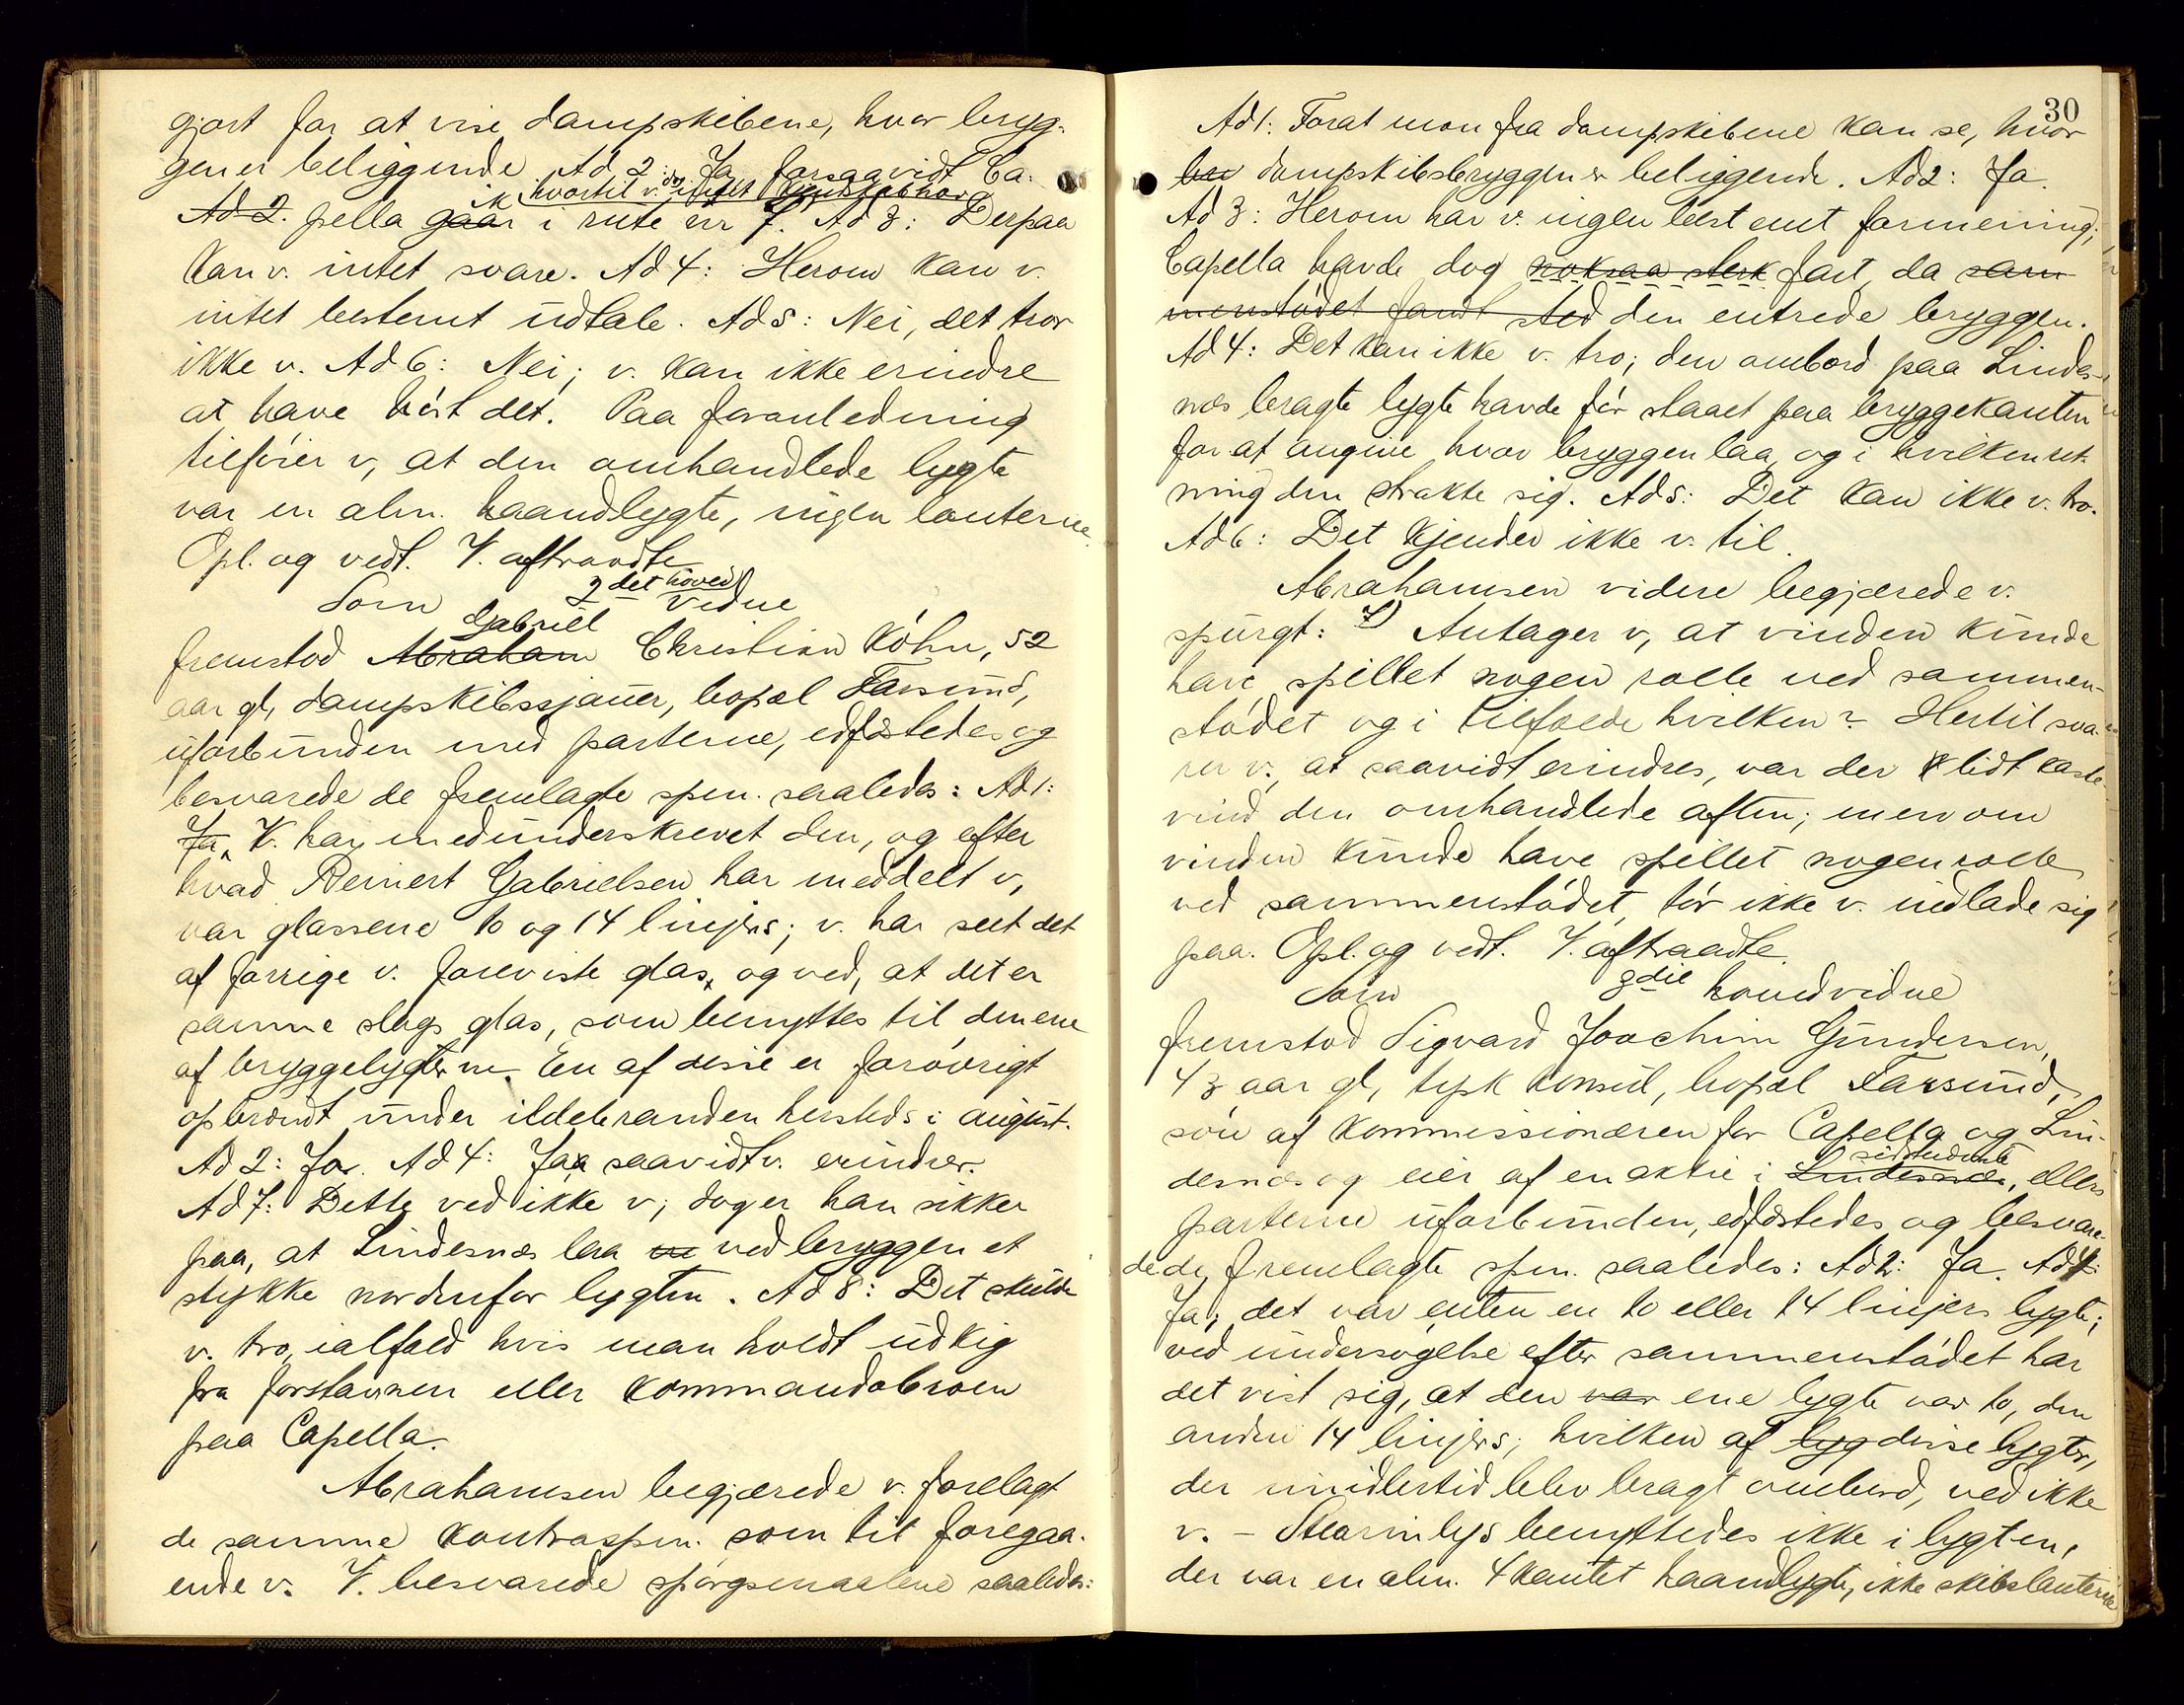 gjort for at vise dampskibene, hvor bryg-
gen er beliggende. Ad 2: Ja forsaavidt Ca-
hvortil v. dog intet kjendskab har
Ad 2. pella gaar i rute nr 7. Ad 3: Derpaa
kan v. intet svare. Ad 4: Herom kan v.
intet bestemt udtale. Ad 5: Nei, det tror
ikke v. Ad 6: Nei; v. kan ikke erindre
at have hørt det. Paa foranledning
tilføier v, at den omhandlede lygte
var en alm. haandlygte, ingen lanterne.
Opl. og vedt. V. aftraadte
Som 2det hoved vidne
Gabriel
fremstod Abraham Christian Köhn, 52
aar gl, dampskibssjauer, bopæl Farsund,
uforbunden med parterne, edfæstedes og
besvarede de fremlagte spm. saaledes: Ad 1:
Ja, V. har medunderskrevet den, og efter
hvad Reinert Gabrielsen har meddelt v,
var glassene 10 og 14 linjers; v. har seet det
af forrige v. foreviste glas, og ved, at det er
samme slags glas, som benyttes til den ene
af bryggelygterne. En af disse er forøvrigt
opbrændt under ildebranden hersteds i august.
Ad 2: Ja. Ad 4: Ja saavidt v. erindrer.
Ad 7: Dette ved ikke v; dog er han sikker
paa, at Lindesnæs laa ved bryggen et
stykke nordenfor lygten. Ad 8: Det skulde
v. tro, ialfald hvis man holdt udkig
fra forstavnen eller kommandobroen
paa Capella.
Abrahamsen begjærede v. forelagt
de samme kontraspm. som til foregaa-
ende v. V. besvarede spørgsmaalene saaledes:
30
Ad 1: Forat man fra dampskibene kan se, hvor
dampskibsbryggen er beliggende. Ad 2: Ja.
Ad 3: Herom har v. ingen bestemt formening;
Capella havde dog noksaa sterk fart, da sam
menstødet fandt sted den entrede bryggen.
Ad 4: Det kan ikke v. tro; den ombord paa Lindes-
næs bragte lygte havde før staaet paa bryggekanten
for at angive hvor bryggen laa, og i hvilken ret-
ning den strakte sig. Ad 5: Det kan ikke v. tro.
Ad 6: Det kjender ikke v. til.
Abrahamsen videre begjærede v.
spurgt: 7) Antager v, at vinden kunde
have spillet nogen rolle ved sammen-
stødet og i tilfælde hvilken? Hertil sva-
rer v. at saavidt erindres, var der lidt kaste-
vind den omhandlede aften; men om
vinden kunde have spillet nogen rolle
ved sammenstødet, tør ikke v. indlade sig
paa. Opl. og vedt. V. aftraadte.
Som 3die hovedvidne
fremstod Sigvard Joachim Gundersen,
43 aar gl, tysk konsul, bopæl Farsund,
søn af kommissionæren for Capella og Lin-
sidstnævnte
desnæs og eier af en aktie i Lindesnæs, ellers
parterne uforbunden, edfæstedes og besvare-
de de fremlagte spm. saaledes: Ad 2: Ja. Ad 4:
Ja; det var enten en 10 eller 14 linjers lygte;
ved undersøgelse efter sammenstødet har
det vist sig, at den var ene lygte var 10, den
anden 14 linjers; hvilken af lyg disse lygter,
der imidlertid blev bragt ombord, ved ikke
v. – Stearinlys benyttedes ikke i lygten,
der var en alm. 4kantet haandlygte, ikke skibslanterne